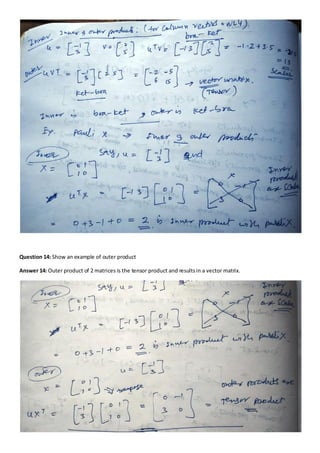 Inner & outer products: (for column vectors
u = [-1 3] v = [2 5] uᵀv = [-1 3] [2 5] = -1·2+3·5 =
bra-ket
= 13
Scalar
outer
uvᵀ = [-1 3] [2 5] = [-2 -5 6 15] → vector matrix.
ket-bra
(Tensor)
Inner is bra-ket, outer is ket-bra
Ex. Pauli X → Inner & outer products
Inner
Say, u = [-1 3] and
X = [0 1 1 0]
Inner product are Scalar
uᵀx = [-1 3] [0 1 1 0] =
= 0+3-1+0 = 2 is inner product with pauli X.
Question 14: Show an example of outer product
Answer 14: Outer product of 2 matrices is the tensor product and results in a vector matrix.
Inner
Say, u = [-1 3]
X = [0 1 1 0]
Inner product are Scalar
uᵀx = [-1 3] [0 1 1 0] =
= 0+3-1+0 = 2 is inner product with pauli X.
outer
u = [-1 3]
x = [0 1 1 0] → transpose
outer products are Tensor product
uxᵀ = [-1 3] [0 1 1 0] = [0 -1 3 0] =